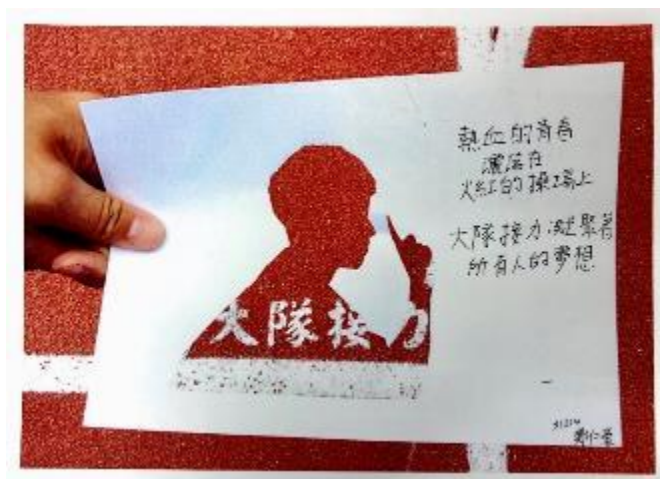 熱血的青春
灑落在
火紅的操場上
大隊接力凝聚著
所有人的夢想
大隊接力